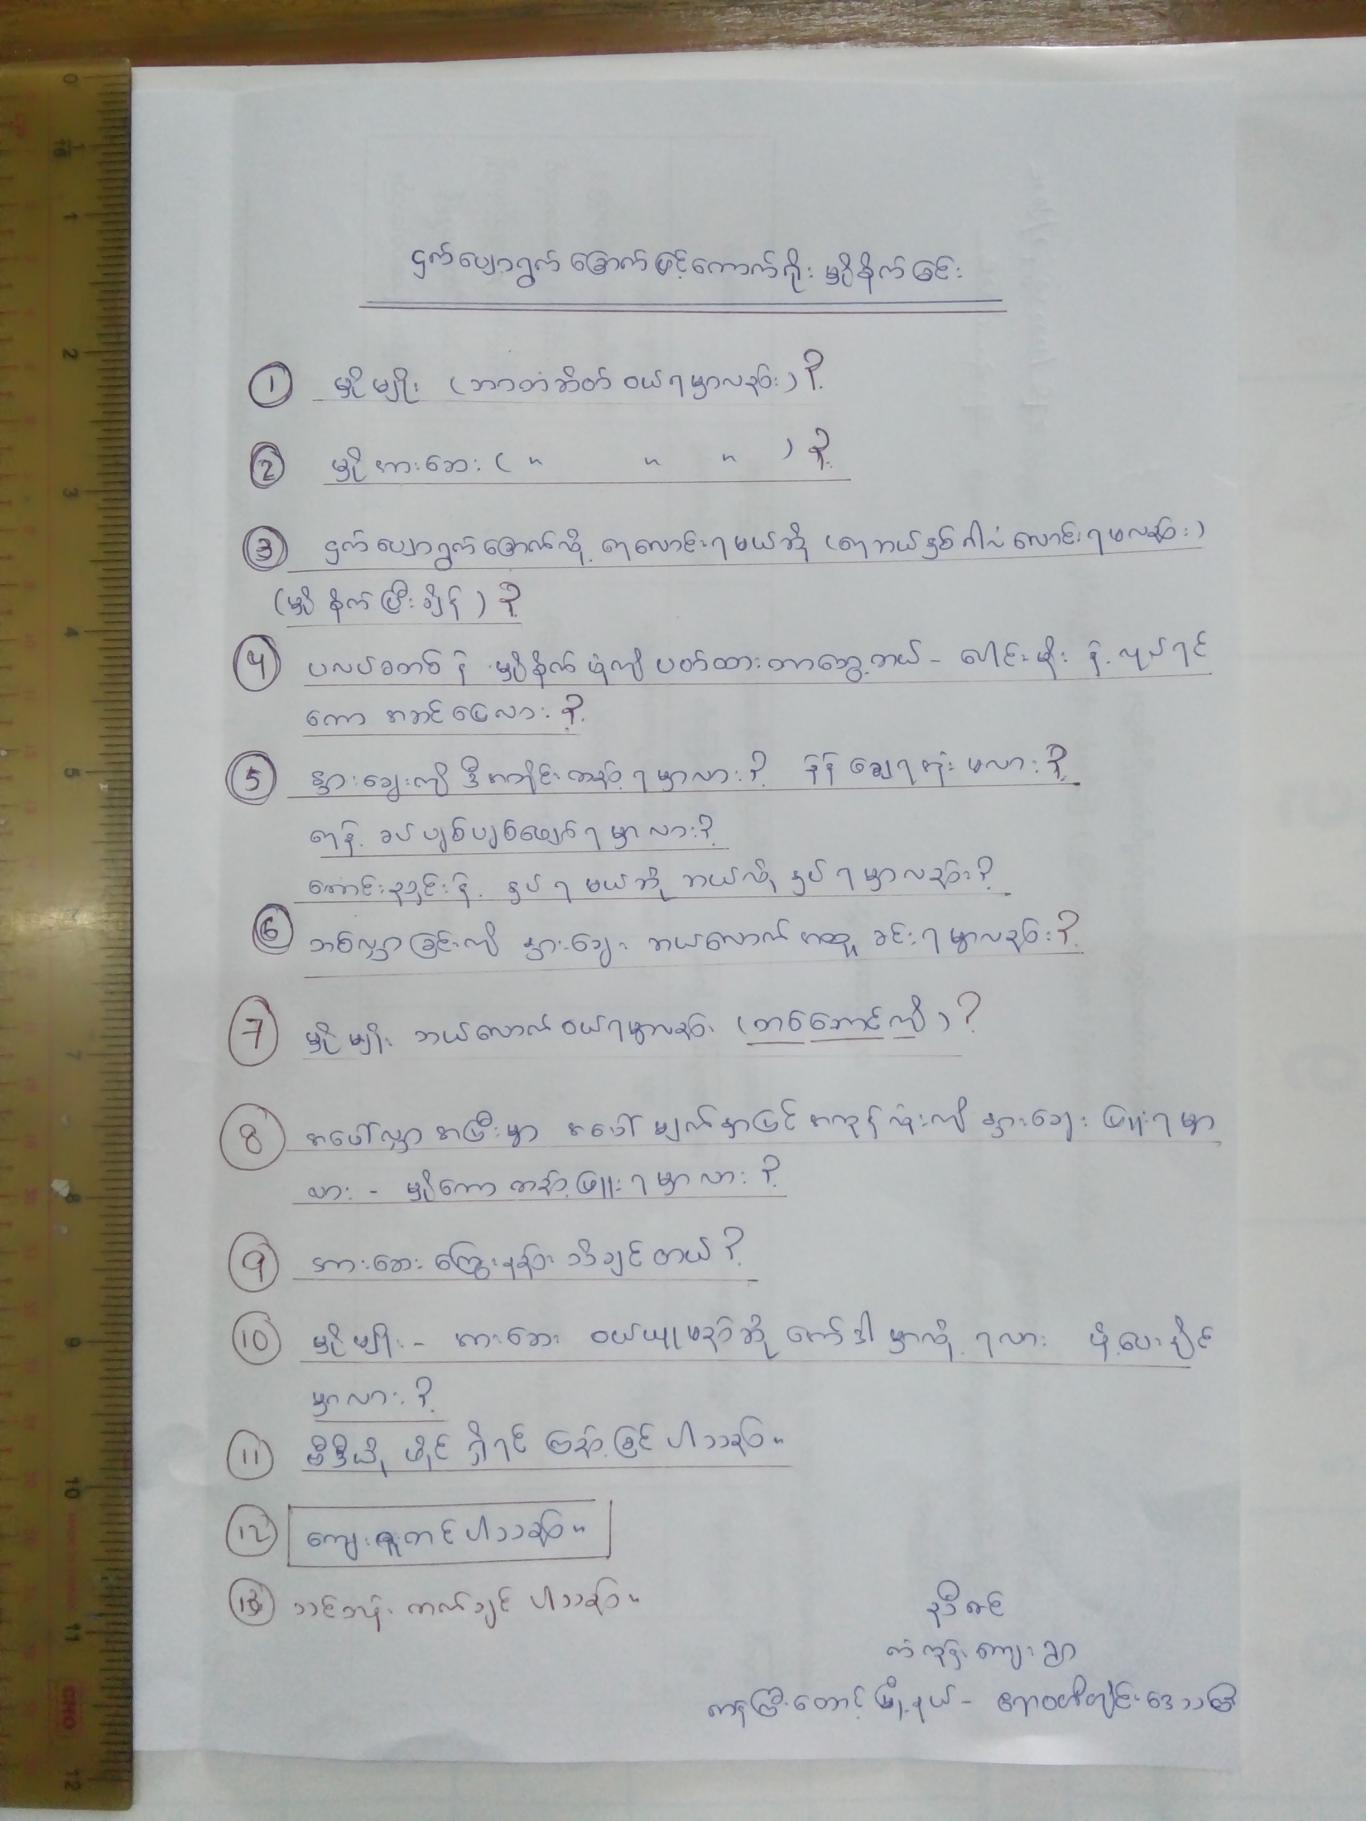 ငှက်ပျောရွက်ခြောက်ဖြင့်ကောက်ရိုးမှိုစိုက်ခြင်း
① မှိုမျိုး (ဘာတံဆိပ် ဝယ်ရမှာလည်း) ?
② မှိုအားဆေး ( " " " ) ?
③ ငှက်ပျောရွက်ခြောက်လို့ ရေလောင်းရမယ်ဆို (ရေဘယ်နှစ်ဂါလံလောင်းရမလည်း)
(မှိုစိုက်ပြီးချိန်) ?
④ ပလပ်စတစ်နဲ့ မှိုစိုက်ပုံကိုပတ်ထားတာတွေ့တယ် - ပေါင်းမိုးနဲ့လုပ်ရင်
ကော အဆင်ပြေလား ?
⑤ နွားချေးကို ဒီအတိုင်းထည့်ရမှာလား ? နဲနဲချေရအုံးမလား ?
ရေနဲ့ ခပ်ပျစ်ပျစ်ဖျော်ရမှာလား ?
ကောင်းနည်းနဲ့ နှပ်ရမယ်ဆို ဘယ်လိုနှပ်ရမှာလည်း ?
⑥ တစ်လွှာခြင်းကို နွားချေး ဘယ်လောက်အထူခင်းရမှာလည်း ?
⑦ မှိုမျိုး ဘယ်လောက်ဝယ်ရမှာလည်း (တစ်ဘောင်ကို) ?
⑧ အပေါ်လွှာအပြီးမှာ အပေါ်မျက်နှာပြင်အကုန်လုံးကိုနွားချေးဖြူးရမှာ
လား - မှိုကောထည့်ဖြူးရမှာလား ?
⑨ အားဆေးကြွေးနည်းသိချင်တယ် ?
⑩ မှိုမျိုး - အားဆေး ဝယ်ယူမည်ဆိုအော်ဒါမှာလို့ရလား ပို့ပေးနိုင်
မှာလား ?
⑪ ဗီဒီယိုဖိုင်ရှိရင်ကြည့်ခြင်ပါသည်။
⑫ ကျေးဇူးတင်ပါသည်။
⑬ သင်တန်းတက်ချင်ပါသည်။
ညီစင်
ကံကုန်းကျေးရွာ
ကန်ကြီးထောင့်မြို့နယ် - ဧရာဝတီတိုင်းဒေသကြီး
0
1
2
3
4
5
7
8
9
10
11
12